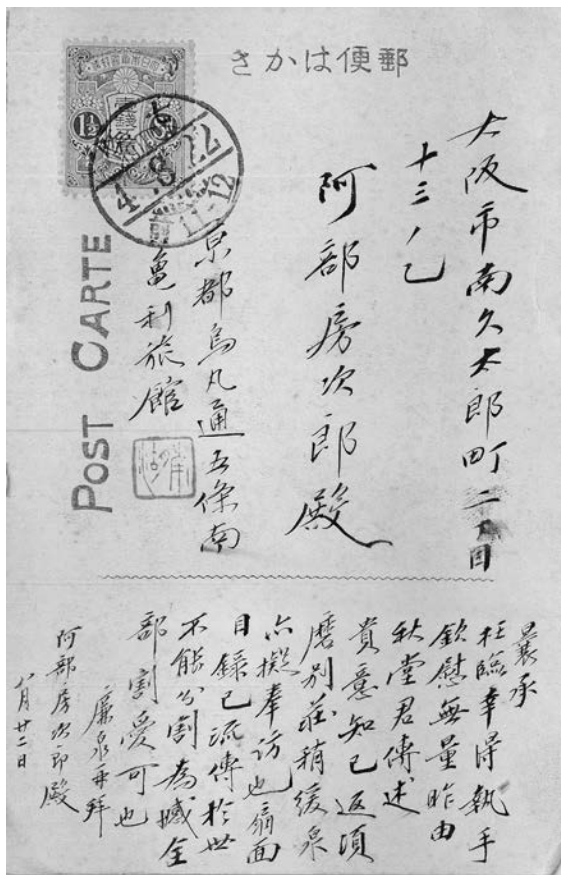 郵便はかき
POST CARTE
1½
大阪市南久太郎町二丁目
十三ノ乙
阿部房次郎殿
京都烏丸通五條南
亀利旅館
4.8.22
11-12
曩承
枉臨幸得執手
欽慰無量昨由
秋堂君傳述
貴意知已返須
磨別莊稍緩泉
亦擬奉訪也扇面
目錄已流傳於世
不能分割為憾全
部割愛可也
廉泉再拜
阿部房次郎殿
八月廿二日